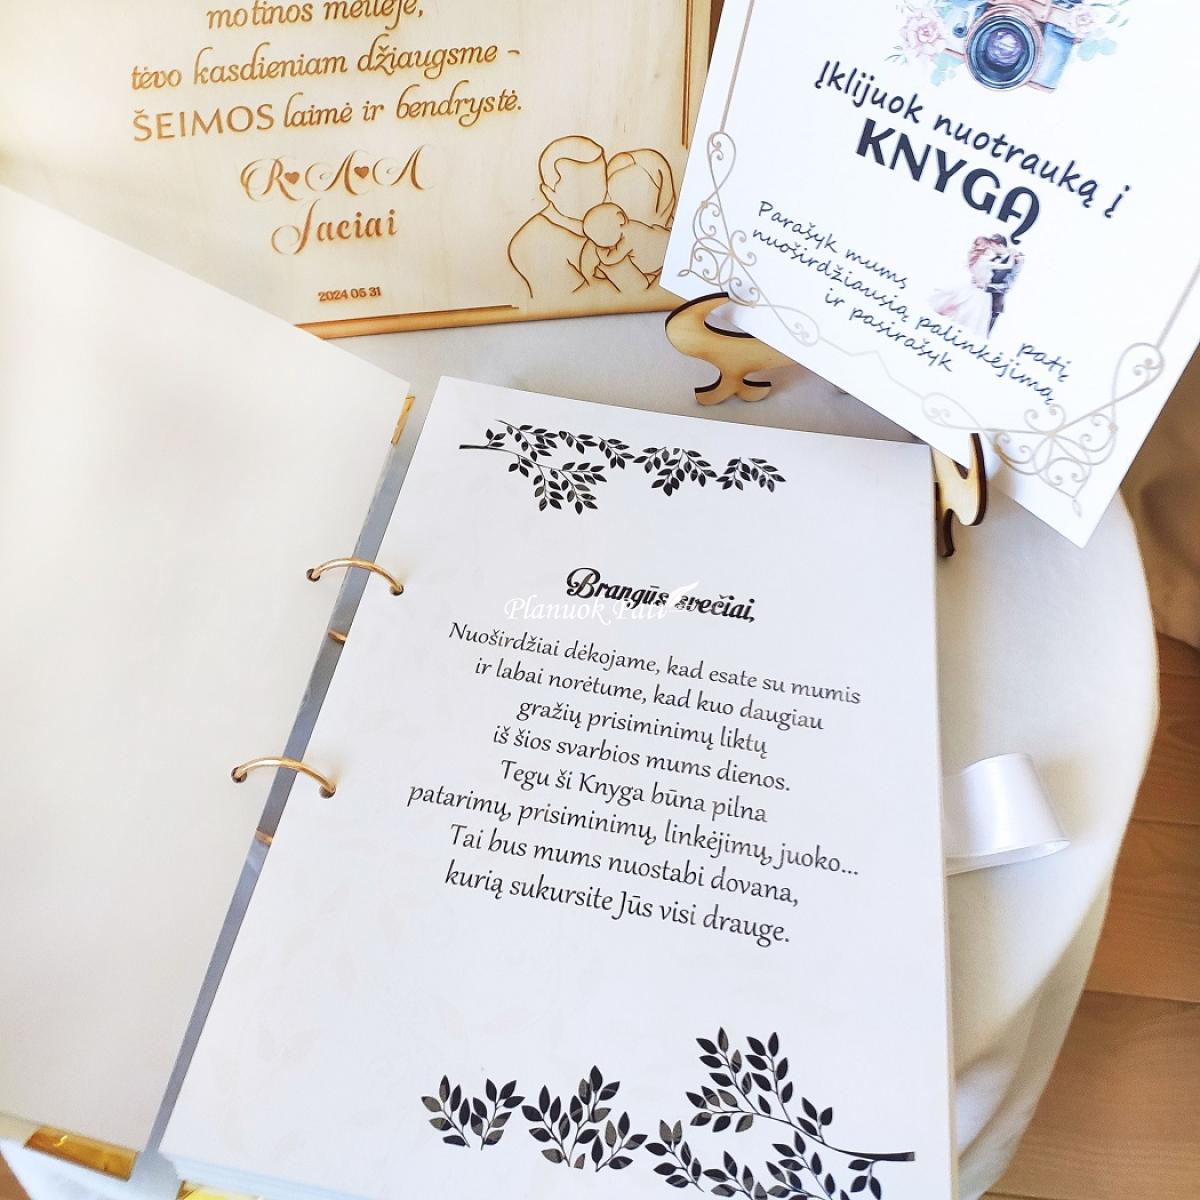 motinos meilėje,
tėvo kasdieniam džiaugsme -
ŠEIMOS laimė ir bendrystė.
R♥A♥A
Jaciai
2024 05 31
Įklijuok nuotrauką į
KNYGĄ
Parašyk mums patį
nuoširdžiausią palinkėjimą
ir pasirašyk
Brangūs svečiai,
Planuok Pati
Nuoširdžiai dėkojame, kad esate su mumis
ir labai norėtume, kad kuo daugiau
gražių prisiminimų liktų
iš šios svarbios mums dienos.
Tegu ši Knyga būna pilna
patarimų, prisiminimų, linkėjimų, juoko...
Tai bus mums nuostabi dovana,
kurią sukursite Jūs visi drauge.